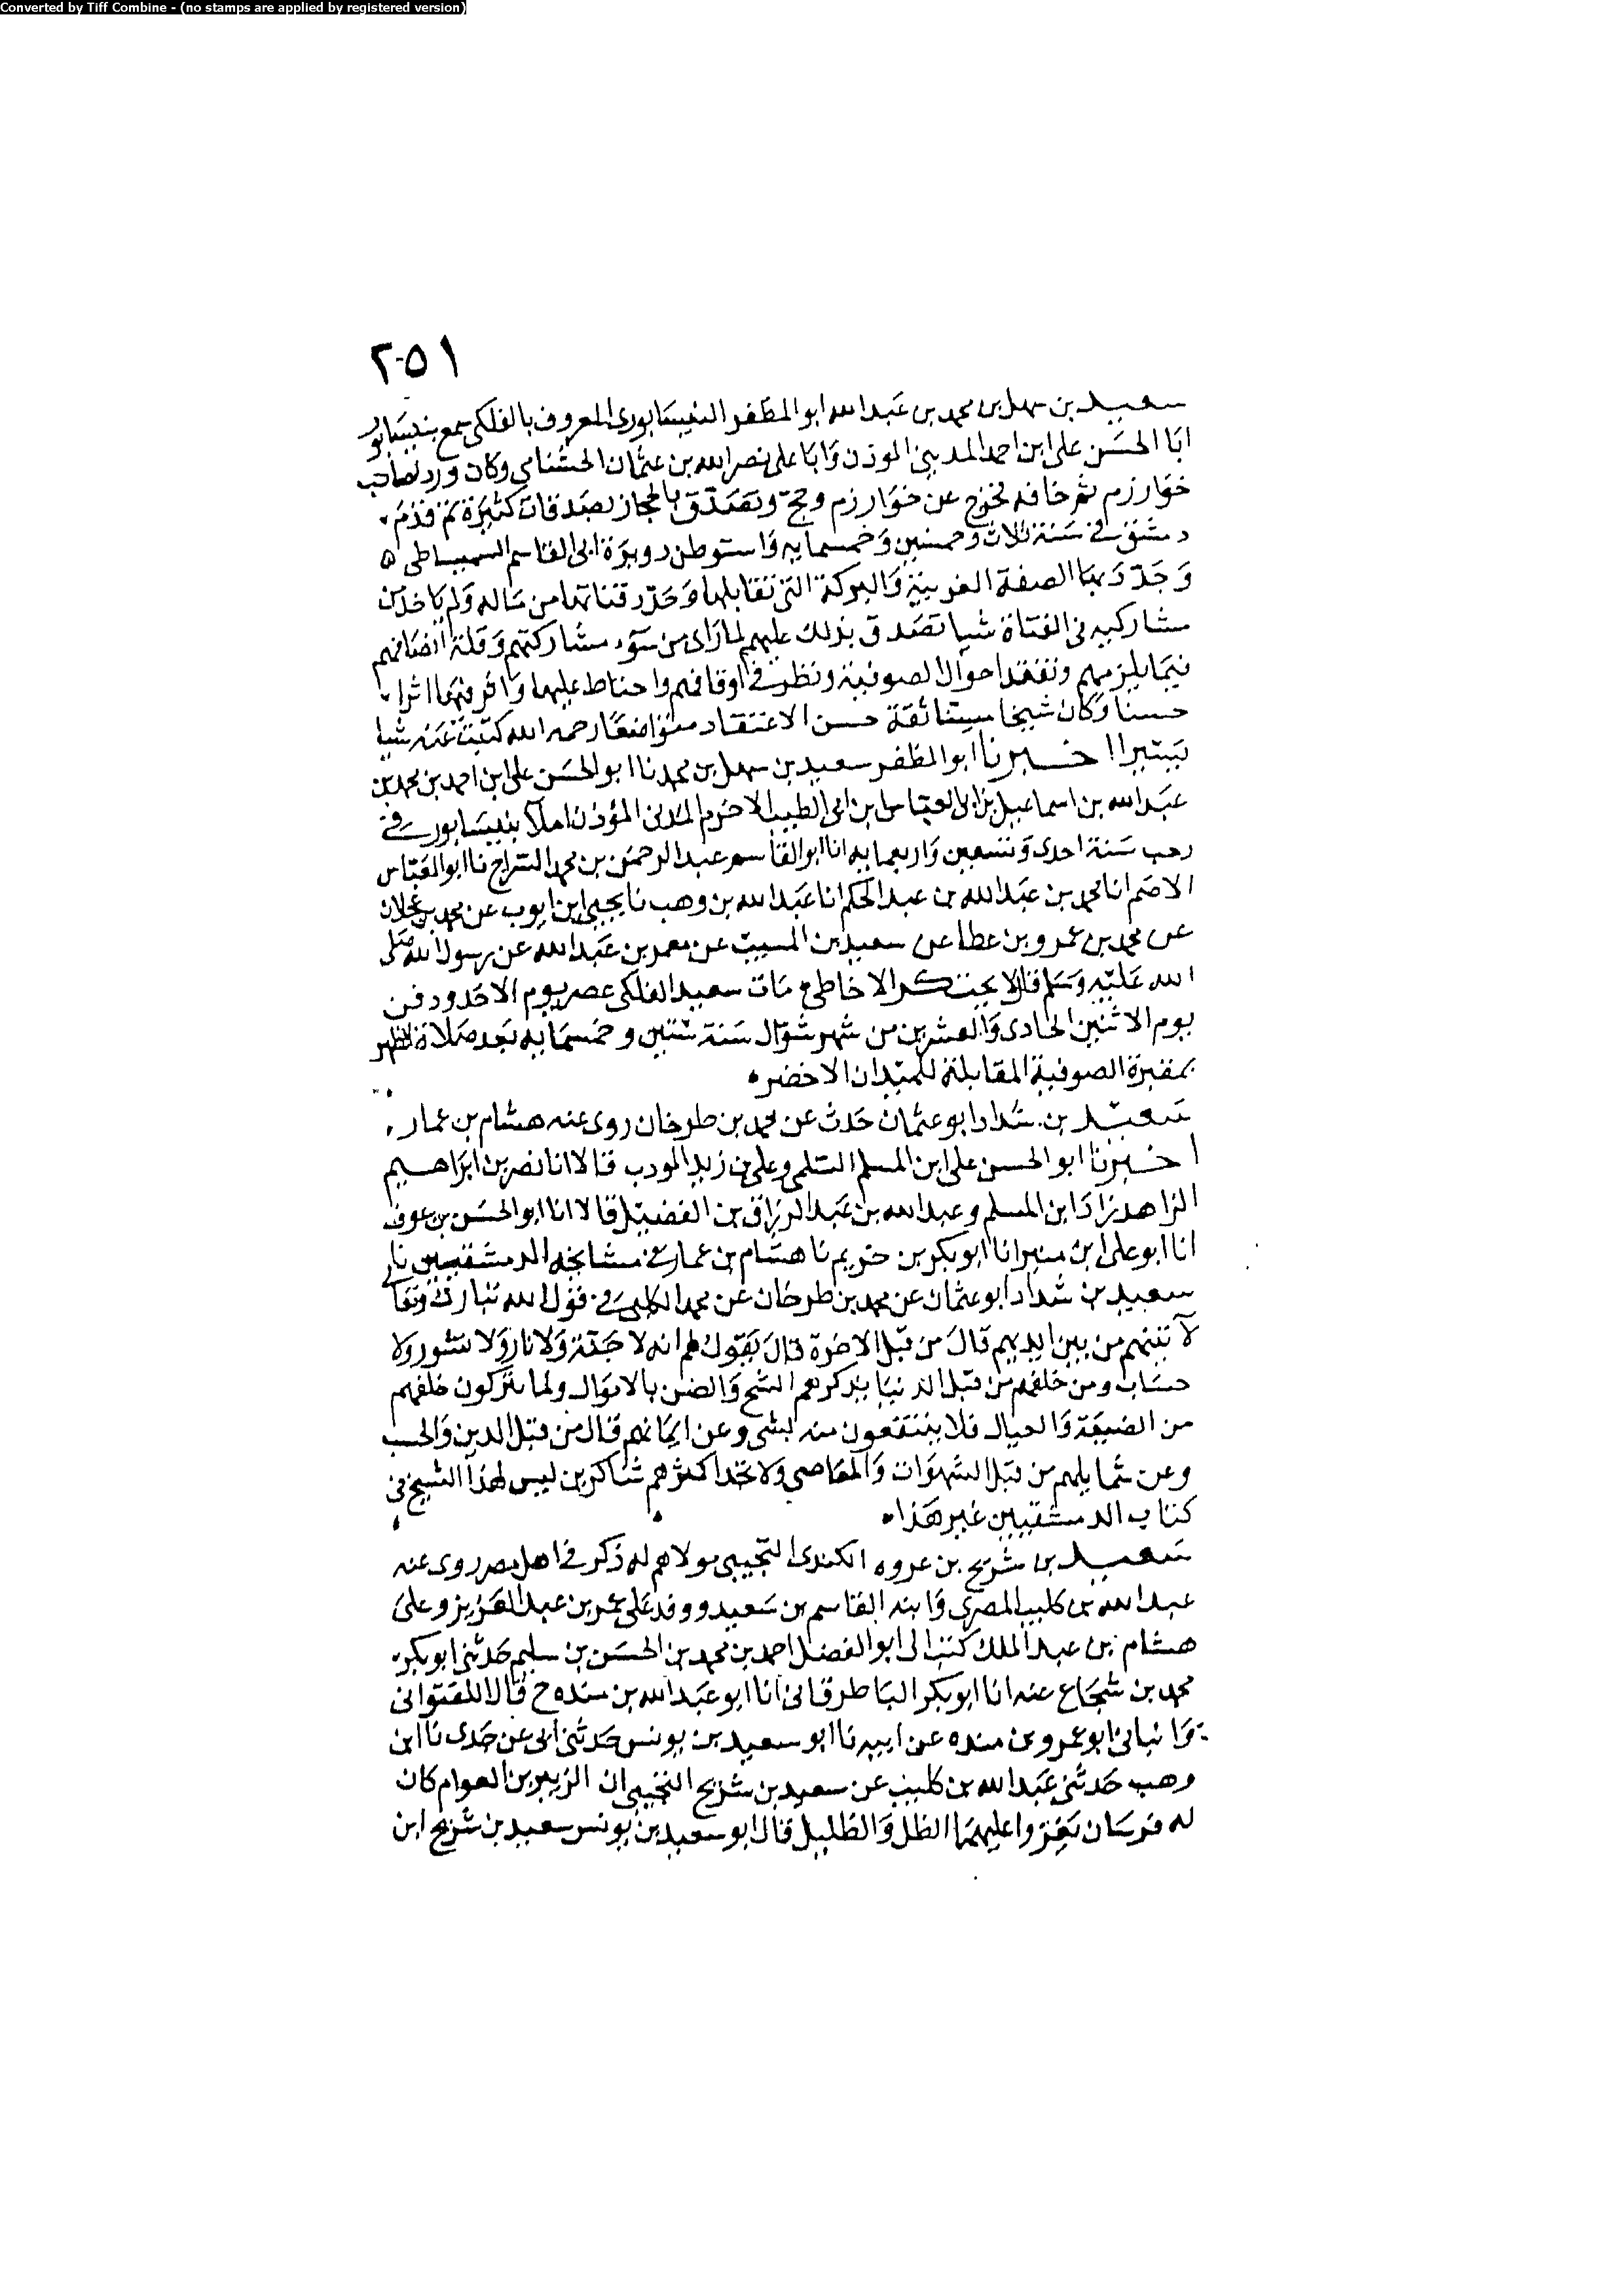 Converted by Tiff Combine - (no stamps are applied by registered version)
٢٥١
سعيد بن سهل بن محمد بن عبد الله ابو المظفر النيسابوري المعروف بالفلكي سمع بنيسابور
ابا الحسن على ابن احمد المديني الموذن وابا على نصر الله بن عثمان الخشنامي وكان وزر لصاحب
خوارزم ثم خافه فخرج عن خوارزم وحج وتصدق بالحجاز بصدقات كثيرة ثم قدم
دمشق في سنة ثلاث وخمسين وخمسمايه واستوطن دويرة ابي القاسم السميساطي ه
وجدد بها الصفة الغربية والبركة التي تقابلها وجدد قناتها من ماله ولم ياخذ من
مشاركيه في القناة شيا تصدق بذلك عليهم لما راى من سوء مشاركتهم وقلة انصافهم
فيما يلزمهم وتفقد احوال الصوفية ونظر في اوقافهم واحتاط عليها واثر فيها اثرا
حسنا وكان شيخا ثقة حسن الاعتقاد متواضعا رحمه الله كتبت عنه شيا
يسيرا اخبرنا ابو المظفر سعيد بن سهل بن محمد نا ابو الحسن على ابن احمد بن محمد بن
عبد الله بن اسماعيل بن ابي العباس بن ابي الطيب الاخرم المديني المؤذن املا بنيسابور في
رجب سنة احدى وتسعين واربعمايه انا ابو القاسم عبد الرحمن بن محمد السراج نا ابو العباس
الاصم انا محمد بن عبد الله بن عبد الحكم انا عبد الله بن وهب نا يحيى ابن ايوب عن محمد بن عجلان
عن محمد بن عمرو بن عطا عن سعيد بن المسيب عن معمر بن عبد الله عن رسول الله صلى
الله عليه وسلم قال لا يحتكر الا خاطئ مات سعيد الفلكي عصر يوم الاحد ودفن
يوم الاثنين الحادي والعشرين من شهر شوال سنة ستين وخمسمايه بعد صلاة الظهر
بمقبرة الصوفية المقابلة للميدان الاخضر
سعيد بن شداد ابو عثمان حدث عن محمد بن طرخان روى عنه هشام بن عمار
اخبرنا ابو الحسن على ابن المسلم السلمي وعلى بن زيد المودب قالا انا نصر بن ابراهيم
الزاهد زاد ابن المسلم وعبد الله بن عبد الرزاق بن الفضيل قالا انا ابو الحسن بن عوف
انا ابو على ابن منير انا ابو بكر بن خريم نا هشام بن عمار في مشايخه الدمشقيين نا
سعيد بن شداد ابو عثمان عن محمد بن طرخان عن محمد الكلبي في قول الله تبارك وتعا
لآتينهم من بين ايديهم قال من قبل الاخرة قال يقول لهم انه لا جنة ولا نار ولا نشور ولا
حساب ومن خلفهم من قبل الدنيا يذكرهم الشح والضن بالاموال ولما يتركون خلفهم
من الضيعة والعيال فلا ينتفعون منه بشي وعن ايمانهم قال من قبل الدين والحسب
وعن شمايلهم من قبل الشهوات والمعاصي ولا تجد اكثرهم شاكرين ليس لهذا الشيخ في
كتاب الدمشقيين غير هذا
سعيد بن شريح بن عروه الكندي التجيبي مولاهم له ذكر في اهل مصر روى عنه
عبد الله بن كليب المصري وابنه القاسم بن سعيد ووفد على عمر بن عبد العزيز وعلى
هشام بن عبد الملك كتب الى ابو الفضل احمد بن محمد بن الحسن بن سليم حدثني ابو بكر
محمد بن شجاع عنه انا ابو بكر الباطرقاني انا ابو عبد الله بن منده ح قال اللفتواني
وانباني ابو عمرو بن منده عن ابيه نا ابو سعيد بن يونس حدثني ابي عن جدي نا ابن
وهب حدثني عبد الله بن كليب عن سعيد بن شريح التجيبي ان الزبير بن العوام كان
له فرسان يغزوا عليهما الظل والظليل قال ابو سعيد بن يونس سعيد بن شريح ابن